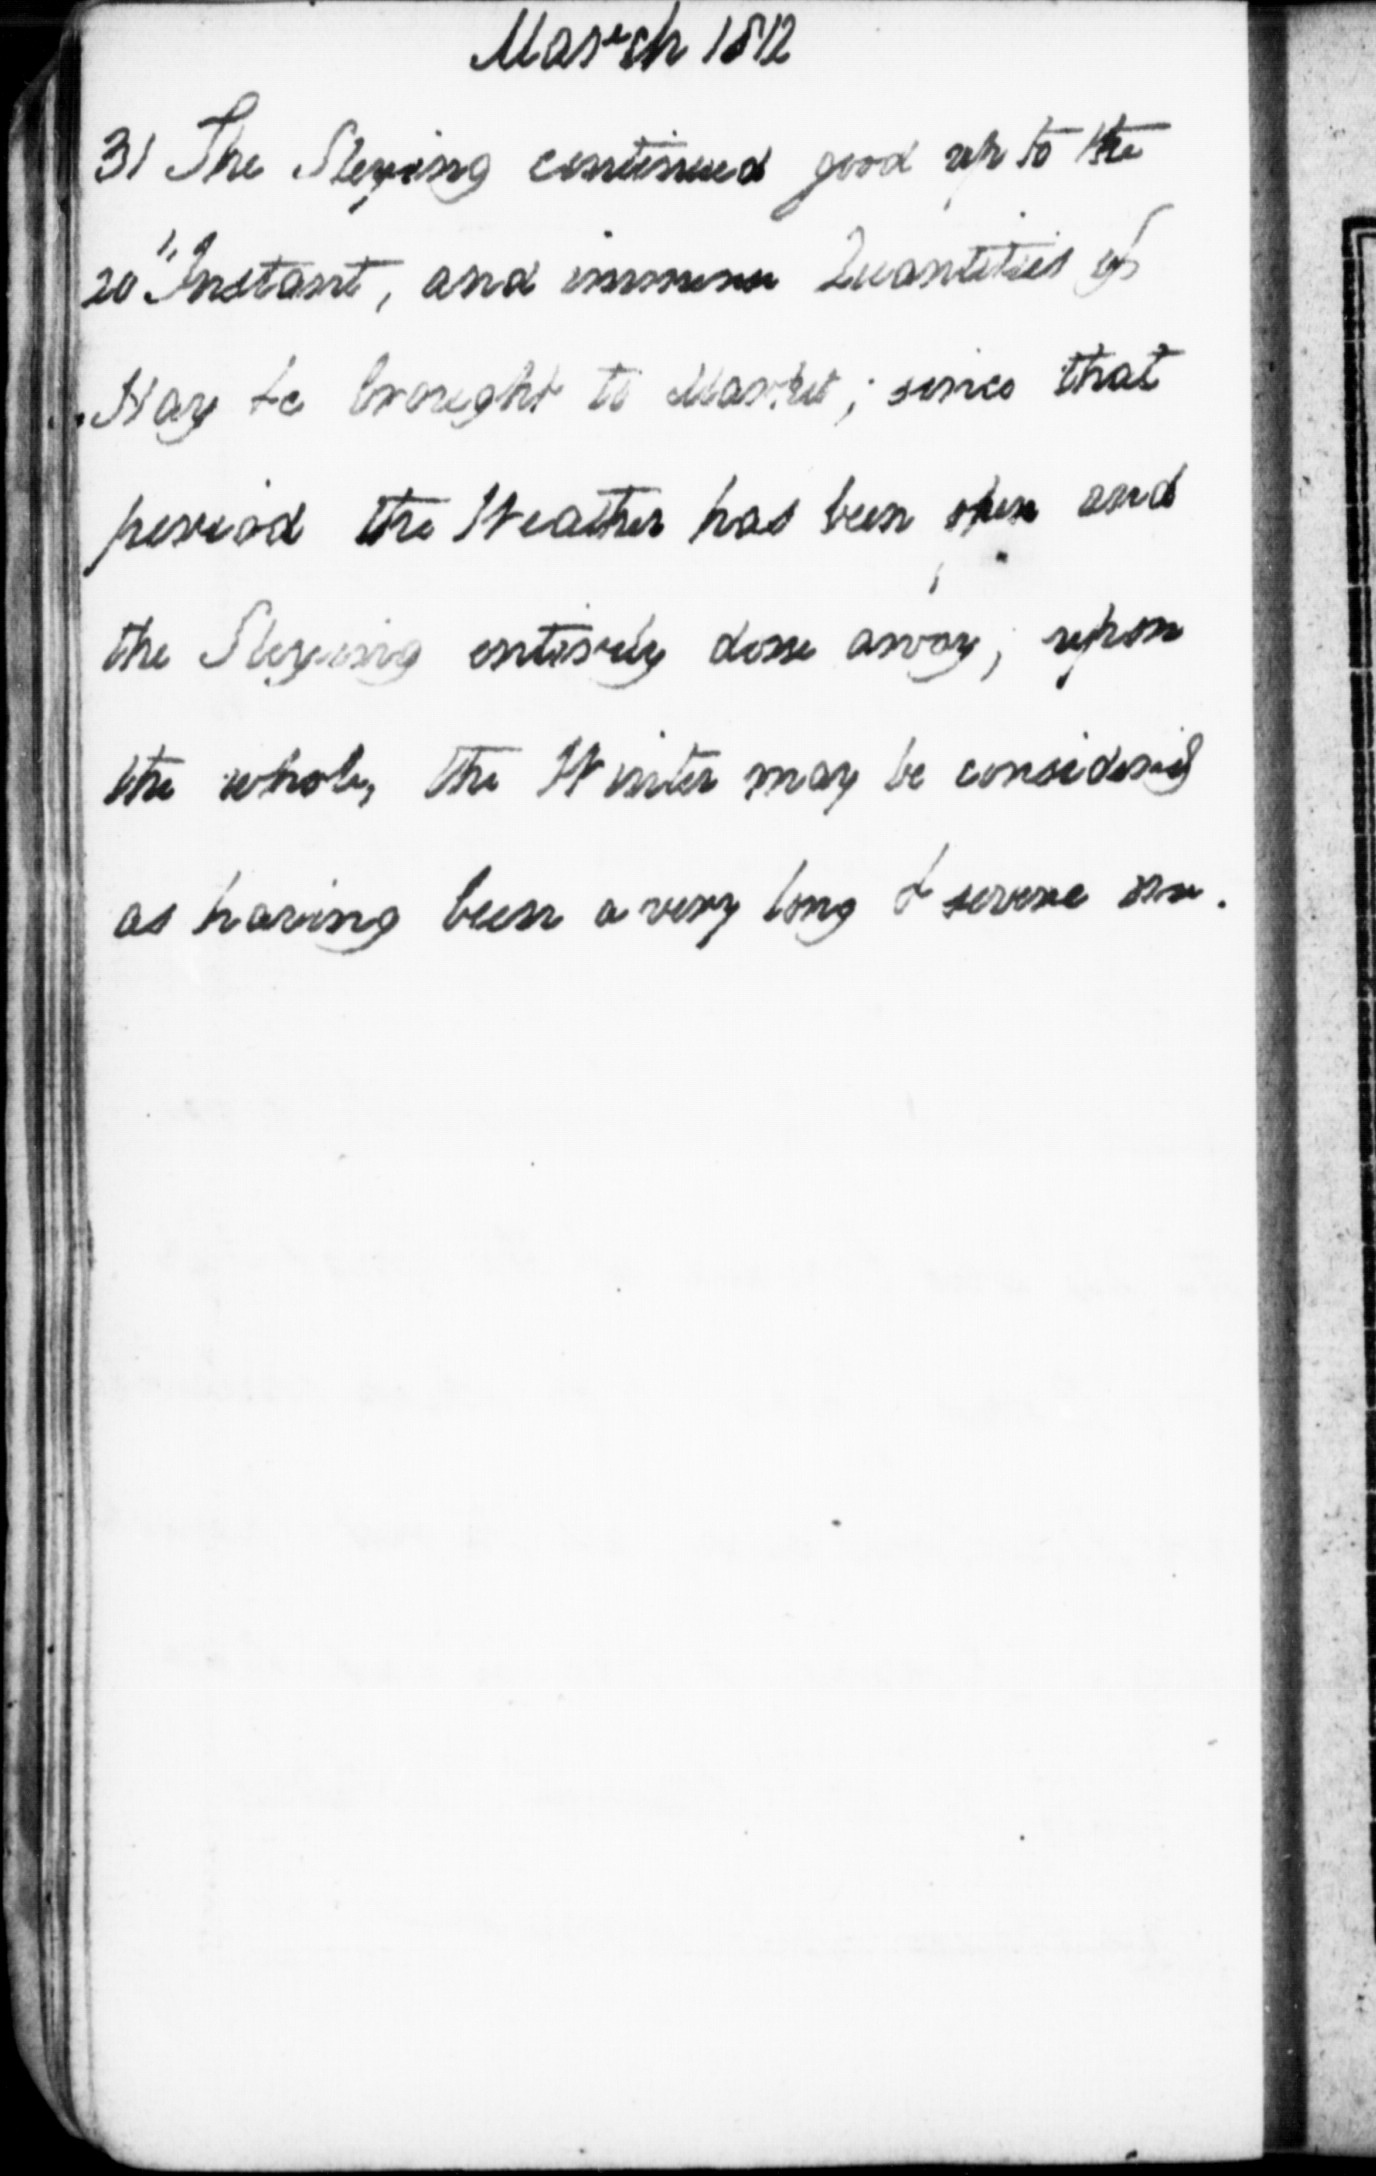 March 1812
31 The Sleying continued good up to the
20" Instant, and immense Quantities of
Hay &c brought to Market; since that
period the Weather has been open and
the Sleying entirely done away; upon
the whole, the Winter may be considered
as having been a very long & severe one.